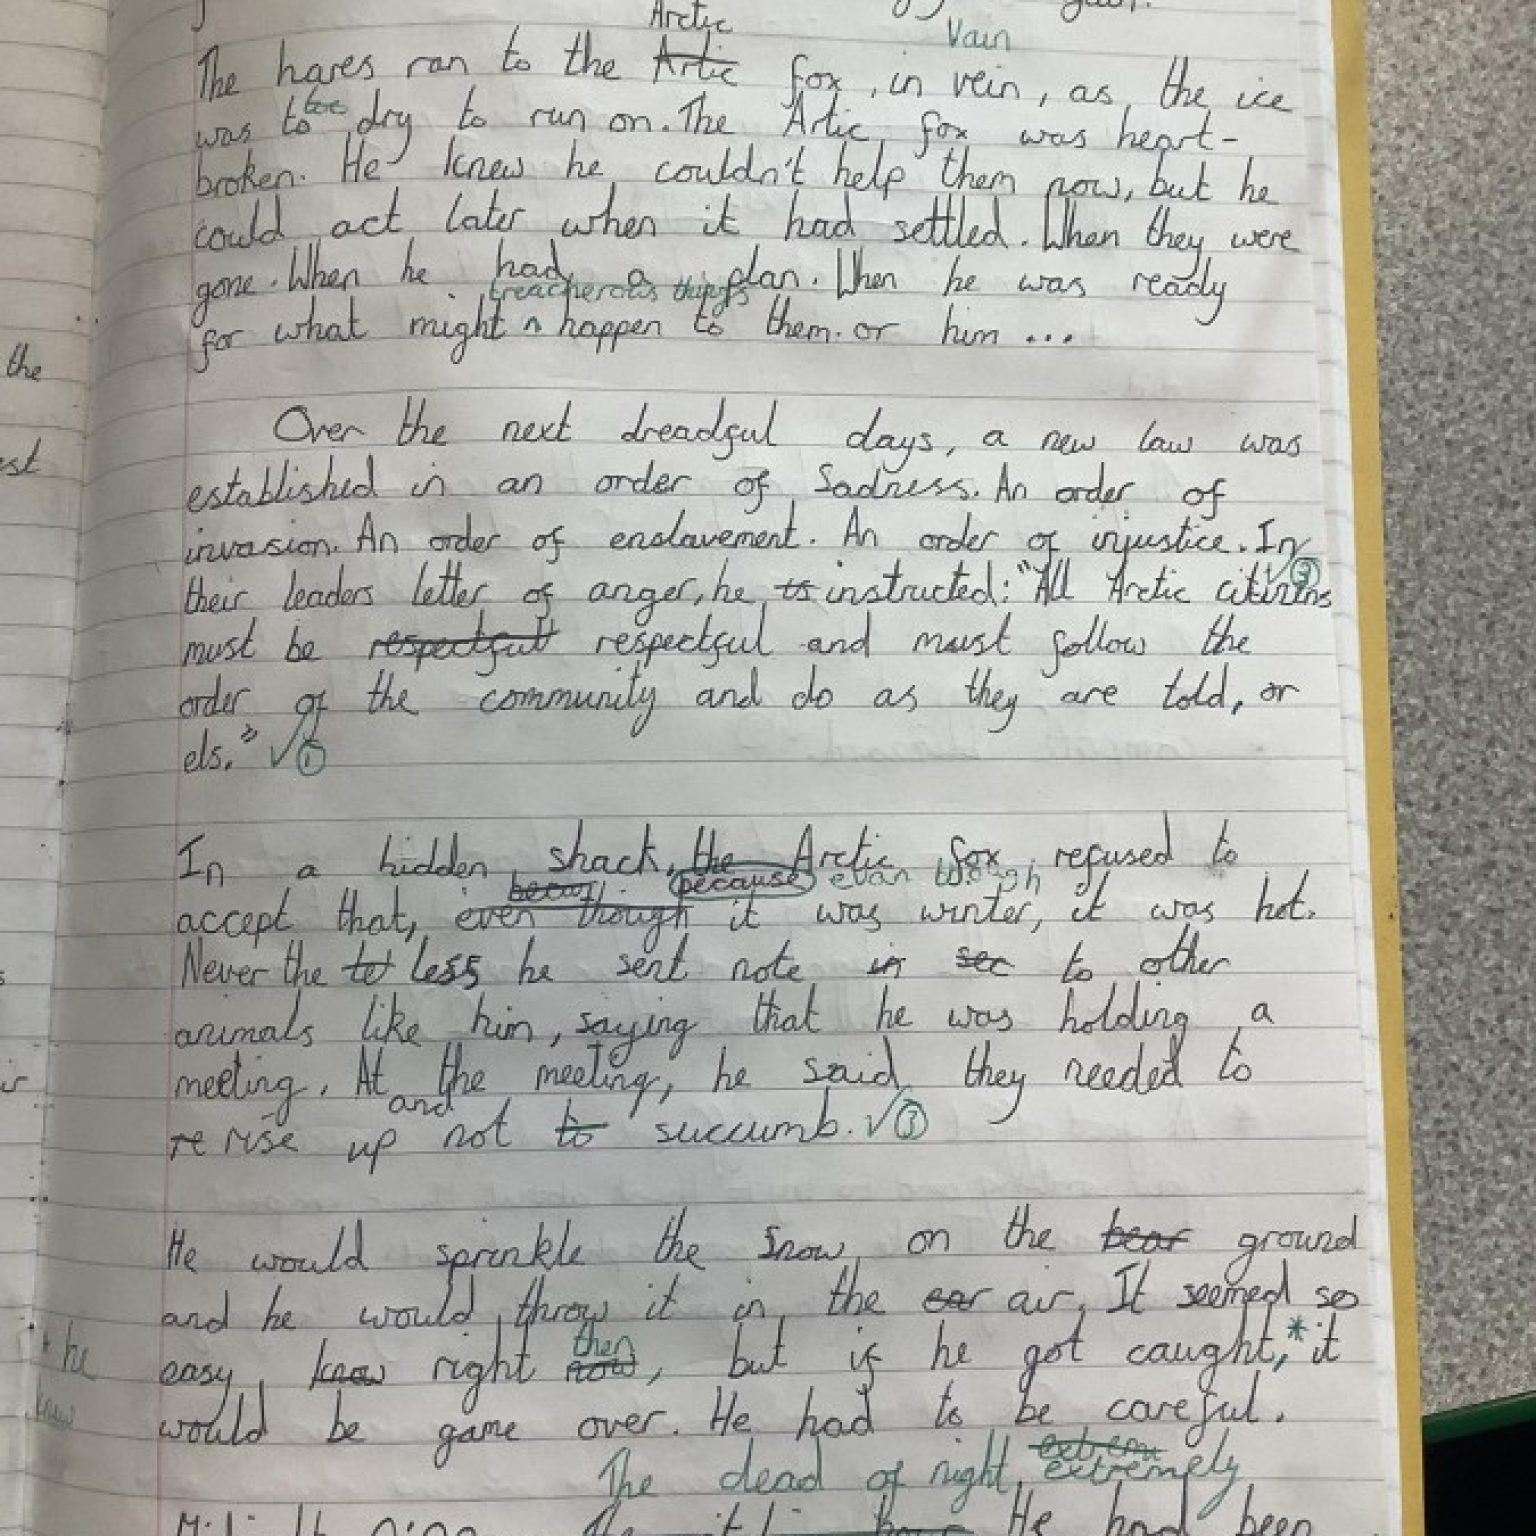 Arctic
Vain
The hares ran to the Artic fox, in vein, as the ice
too
was to dry to run on. The Artic fox was heart-
broken. He knew he couldn't help them now, but he
could act later when it had settled. When they were
gone. When he had a plan. When he was ready
treacherous things
for what might ^ happen to them. or him ...
the
Over the next dreadful days, a new law was
est
established in an order of Sadness. An order of
invasion. An order of enslavement. An order of injustice. In
✓②
their leaders letter of anger, he is instructed: "All Arctic citizens
must be respectful respectful and must follow the
order of the community and do as they are told, or
els." ✓①
In a hidden shack, the Arctic fox refused to
because evan though
accept that, even though it was winter, it was hot.
Never the less he sent note in sec to other
animals like him, saying that he was holding a
meeting. At the meeting, he said they needed to
and
re rise up not to succumb. ✓③
He would sprinkle the Snow on the bear ground
and he would throw it in the ear air. It seemed so
then
* he
easy know right now, but if he got caught,* it
knew
would be game over. He had to be careful.
extrem
The dead of night, extremely
He had been